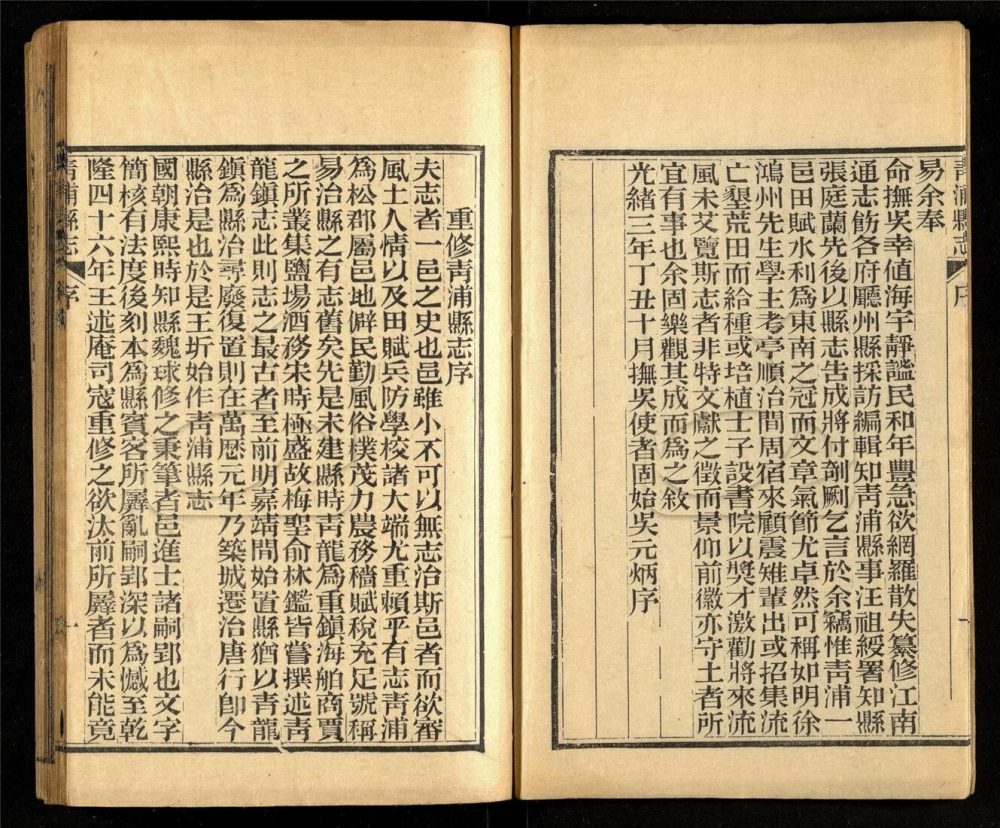 易余奉
命撫吳幸值海宇靜謐民和年豐急欲網羅散失纂修江南
通志飭各府廳州縣採訪編輯知靑浦縣事汪祖綬署知縣
張庭蘭先後以縣志告成將付剞劂乞言於余竊惟靑浦一
邑田賦水利爲東南之冠而文章氣節尤卓然可稱如明徐
鴻州先生學主考亭順治間周宿來顧震雉輩出或招集流
亡墾荒田而給種或培植士子設書院以奬才激勸將來流
風未艾覽斯志者非特文獻之徵而景仰前徽亦守土者所
宜有事也余固樂觀其成而爲之敘
光緒三年丁丑十月撫吳使者固始吳元炳序
重修靑浦縣志序
夫志者一邑之史也邑雖小不可以無志治斯邑者而欲審
風土人情以及田賦兵防學校諸大端尤重賴乎有志靑浦
爲松郡屬邑地僻民勤風俗樸茂力農務穡賦稅充足號稱
易治縣之有志舊矣先是未建縣時靑龍爲重鎭海舶商賈
之所叢集鹽場酒務宋時極盛故梅聖俞林鑑皆嘗撰述靑
龍鎭志此則志之最古者至前明嘉靖間始置縣猶以靑龍
鎭爲縣治尋廢復置則在萬厯元年乃築城遷治唐行卽今
縣治是也於是王圻始作靑浦縣志
國朝康熙時知縣魏球修之秉筆者邑進士諸嗣郢也文字
簡核有法度後刻本爲縣賓客所羼亂嗣郢深以爲憾至乾
隆四十六年王述庵司寇重修之欲汰前所羼者而未能竟
靑浦縣志
序
一